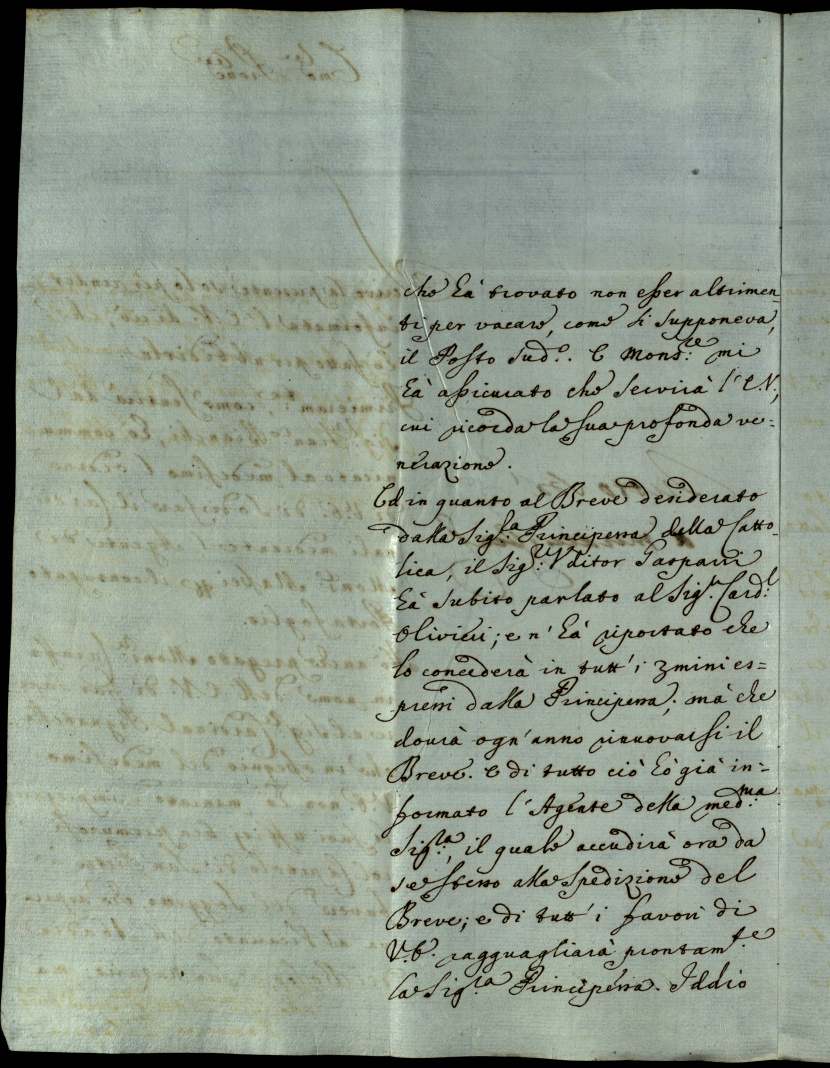 che hà trovato non esser altrimen-
ti per vacare, come si supponeva,
il Posto sud.º. E Mons.re mi
hà assicurato che servirà l'E.V.,
cui ricorda la sua profonda ve-
nerazione.
Ed in quanto al Breve desiderato
dalla Sig.ra Principessa della Catto-
lica, il Sig.r Vditor Gasparri
hà subito parlato al Sig.r Card.l
Olivieri; e n'hà riportato che
lo concederà in tutt'i 3mini es-
pressi dalla Principessa; mà che
dovrà ogn'anno rinnovarsi il
Breve. E di tutto ciò hò già in-
formato l'Agente della med.ma
Sig.ra, il quale accudirà ora da
se stesso alla spedizione del
Breve; e di tutt'i favori di
V.E. ragguagliarà prontam.te
la Sig.ra Principessa. Iddio